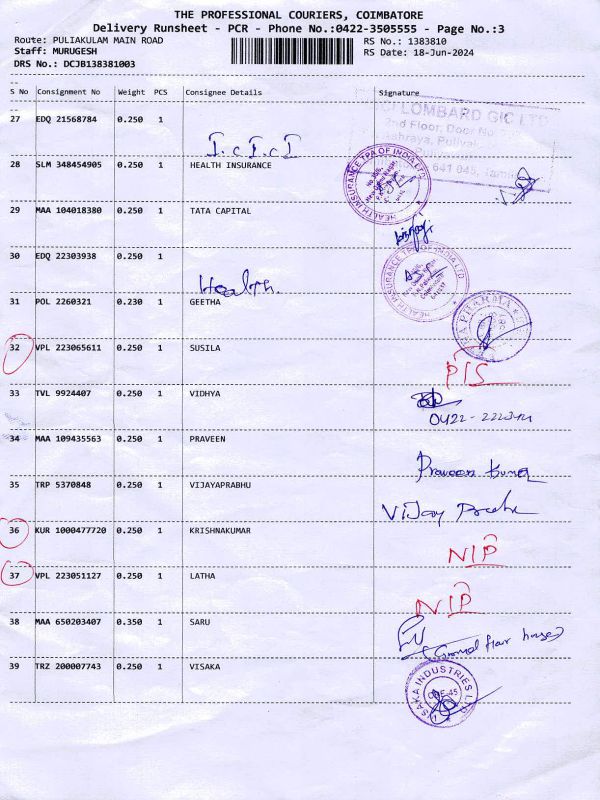 THE PROFESSIONAL COURIERS, COIMBATORE
Delivery Runsheet - PCR - Phone No.:0422-3505555 - Page No.:3
Route: PULIAKULAM MAIN ROAD RS No.: 1383810
Staff: MURUGESH RS Date: 18-Jun-2024
DRS No.: DCJB138381003
S No Consignment No Weight PCS Consignee Details Signature
27 EDQ 21568784 0.250 1 I.C.I.C.I
LOMBARD GIC LTD
2nd Floor, Door No
641 045
28 SLM 348454905 0.250 1 HEALTH INSURANCE
HEALTH INSURANCE TPA OF INDIA LTD
29 MAA 104018380 0.250 1 TATA CAPITAL
30 EDQ 22303938 0.250 1 Health.
HEALTH INSURANCE TPA OF INDIA LTD
31 POL 2260321 0.230 1 GEETHA
PHARMA
32 VPL 223065611 0.250 1 SUSILA PIS
33 TVL 9924407 0.250 1 VIDHYA
0422-
34 MAA 109435563 0.250 1 PRAVEEN Praveen Kumar
35 TRP 5370848 0.250 1 VIJAYAPRABHU Vijay
36 KUR 1000477720 0.250 1 KRISHNAKUMAR NIP
37 VPL 223051127 0.250 1 LATHA NIP
38 MAA 650203407 0.350 1 SARU (Ground floor house)
39 TRZ 200007743 0.250 1 VISAKA
SAKA INDUSTRIES LTD
CBE-45